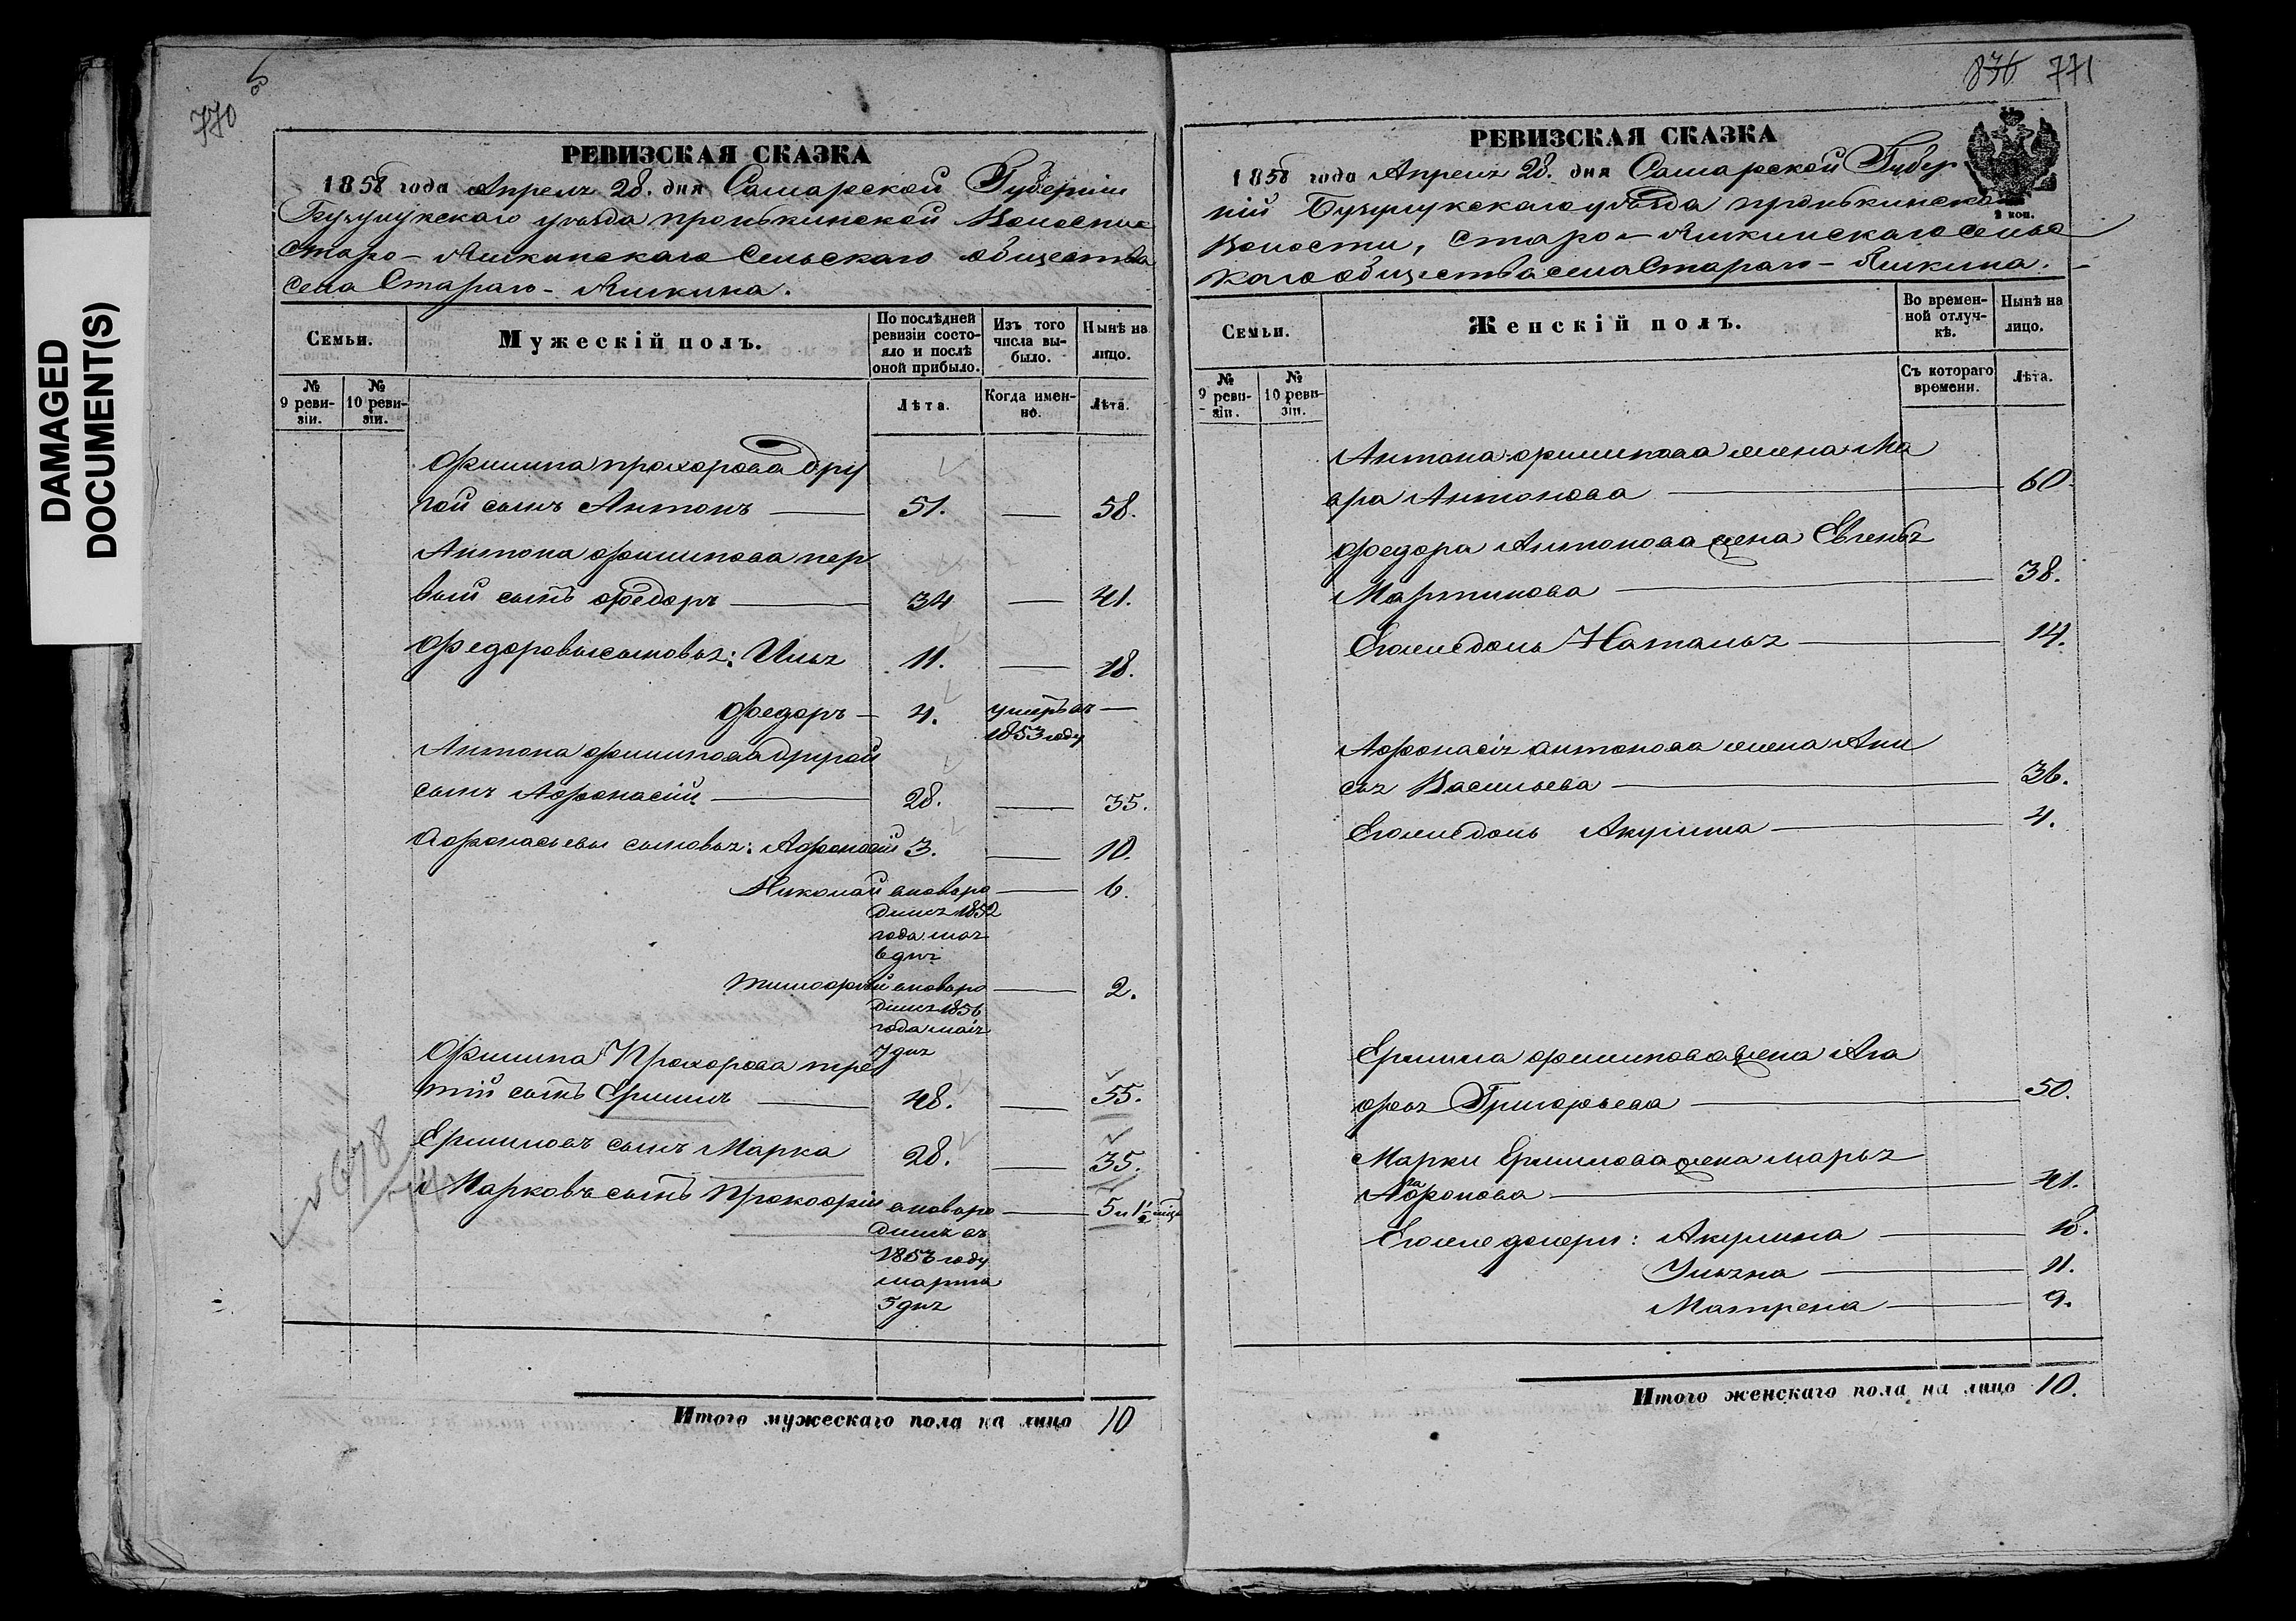 DAMAGED
DOCUMENT(S)
770
РЕВИЗСКАЯ СКАЗКА
1858 года Апреля 28. дня Самарской Губерніи
Бузулукскаго уѣзда пронькинской Волости
Старо-Яшкинскаго Сельскаго общества
села Стараго-Яшкина.
Семьи.
Мужескій полъ.
По послѣдней ревизіи состояло и послѣ оной прибыло.
Изъ того числа выбыло.
Нынѣ на лицо.
№ 9 ревизіи.
№ 10 ревизіи.
Лѣта.
Когда именно.
Лѣта.
Филипа прохорова дру
гой сынъ Антонъ 51. — 58.
Антона филипова пер
вый сынъ Федоръ 34 — 41.
Федоровы сыновья: Илья 11. — 18.
Федоръ — 4. умеръ въ —
1853 году
Антона филипова другой
сынъ Афонасій 28. — 35.
Афонасьевы сыновья: Афонасій 3. — 10.
Николай вновь ро — 6.
дился 1852
года мая
6 дня
тимофей вновь ро — 2.
дился 1856
года маія
7 дня
Филипа Прохорова тре
тій сынъ Ермилъ 48. — 55.
Ермиловъ сынъ Марка 28. — 35.
Марковъ сынъ Прокофій вновь ро — 5 и 1½ мѣц
дился въ
1853 году
марта
5 дня
№ 678
Итого мужескаго пола на лицо 10
836 771
РЕВИЗСКАЯ СКАЗКА
1858 года Апреля 28. дня Самарской Губер
ній Бузулукскаго уѣзда пронькинской
Волости, Старо-Яшкинскаго сельс
каго общества села Стараго-Яшкина.
2 коп.
Семьи.
Женскій полъ.
Во временной отлучкѣ.
Нынѣ на лицо.
№ 9 ревизіи.
№ 10 ревизіи.
Съ котораго времени.
Лѣта.
Антона филипова жена Ма
вра Антонова 60.
Федора Антонова жена Евгенья
Мартинова 38.
Егоже дочь Наталья 14.
Афонасія антонова жена Ани
сья Васильева 36.
Егоже дочь Акулина 4.
Ермила филипова жена Ага
фья Григорьева 50.
Марки Ермилова жена марья
Афонова 41.
Егоже дочери: Акулина 18.
Ульяна 11.
Матрена 9.
Итого женскаго пола на лицо 10.